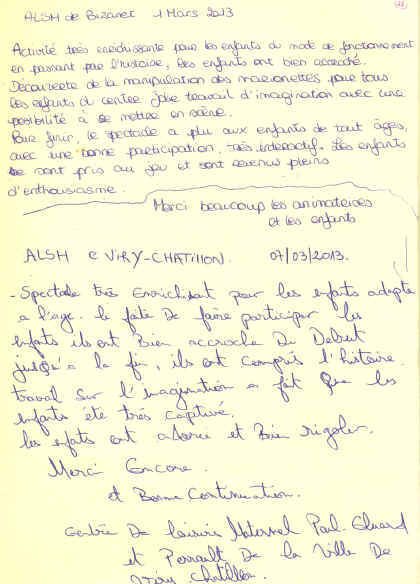 ALSH de Bizanet 1 Mars 2013
Activité très enrichissante pour les enfants du mode de fonctionnement
en passant par l'histoire, les enfants ont bien accroché.
Découverte de la manipulation des marionettes pour tous
les enfants du centre jolie travail d'imagination avec une
posibilité à se mettre en scène.
Pour finir, le spectacle a plu aux enfants de tout âges,
avec une bonne participation, très interactif. Les enfants
se sont pris au jeu et sont revenus pleins
d'enthousiasme.
Merci beaucoup les animatrices
et les enfants
ALSH VIRY-CHATILLON. 07/03/2013.
- Spectacle très Enrichisant pour les enfants adapté
a l'age. le faite De faire participer les
enfants ils ont Bien accroché Du Debut
jusqu'a la fin, ils ont compris l'histoire.
travail sur l'imagination a fait que les
enfants été très captivé.
les enfats ont adoré et Bien rigoler.
Merci Encore.
et Bonne Continuation.
Centre De loisirs Maternel Paul-Eluard
et Perrault De la Ville De
Viry Chatillon.